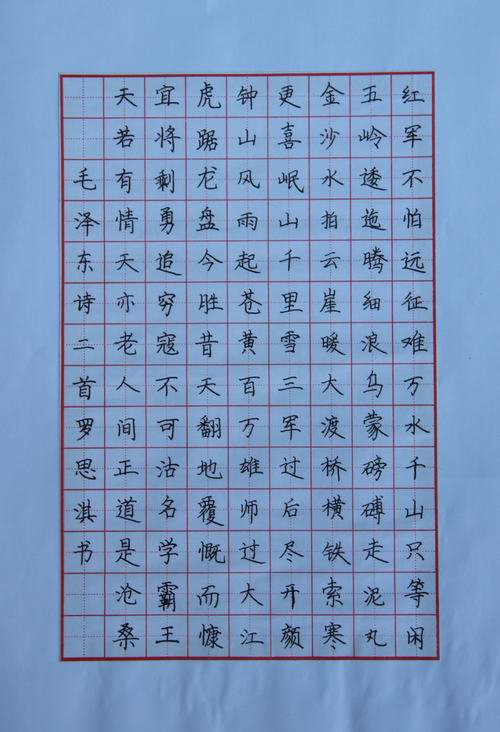 红军不怕远征难万水千山只等闲
五岭逶迤腾细浪乌蒙磅礴走泥丸
金沙水拍云崖暖大渡桥横铁索寒
更喜岷山千里雪三军过后尽开颜
钟山风雨起苍黄百万雄师过大江
虎踞龙盘今胜昔天翻地覆慨而慷
宜将剩勇追穷寇不可沽名学霸王
天若有情天亦老人间正道是沧桑
毛泽东诗二首罗思淇书